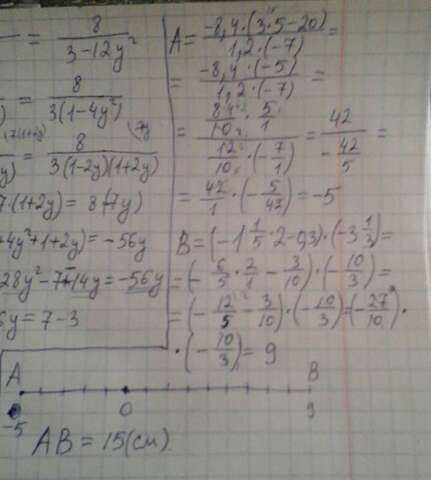 = 8/(3-12y²)
= 8/(3(1-4y²))
= 8/(3(1-2y)(1+2y))
7·(1+2y) = 8(-7y)
4y²+1+2y) = -56y
28y²-7-14y = -56y
6y = 7-3
A = (-8,4·(3·5-20))/(1,2·(-7)) =
= (-8,4·(-5))/(1,2·(-7)) =
= (84/10 · 5/1)/(12/10 · (-7/1)) = 42/(-42/5) =
= 42/1 · (-5/43) = -5
B = (-1 1/5 · 2-0,3)·(-3 1/3) =
= (-6/5 · 2/1 - 3/10)·(-10/3) =
= (-12/5 - 3/10)·(-10/3) = (-27/10)·
·(-10/3) = 9
A B
-5 0 9
AB = 15(см)